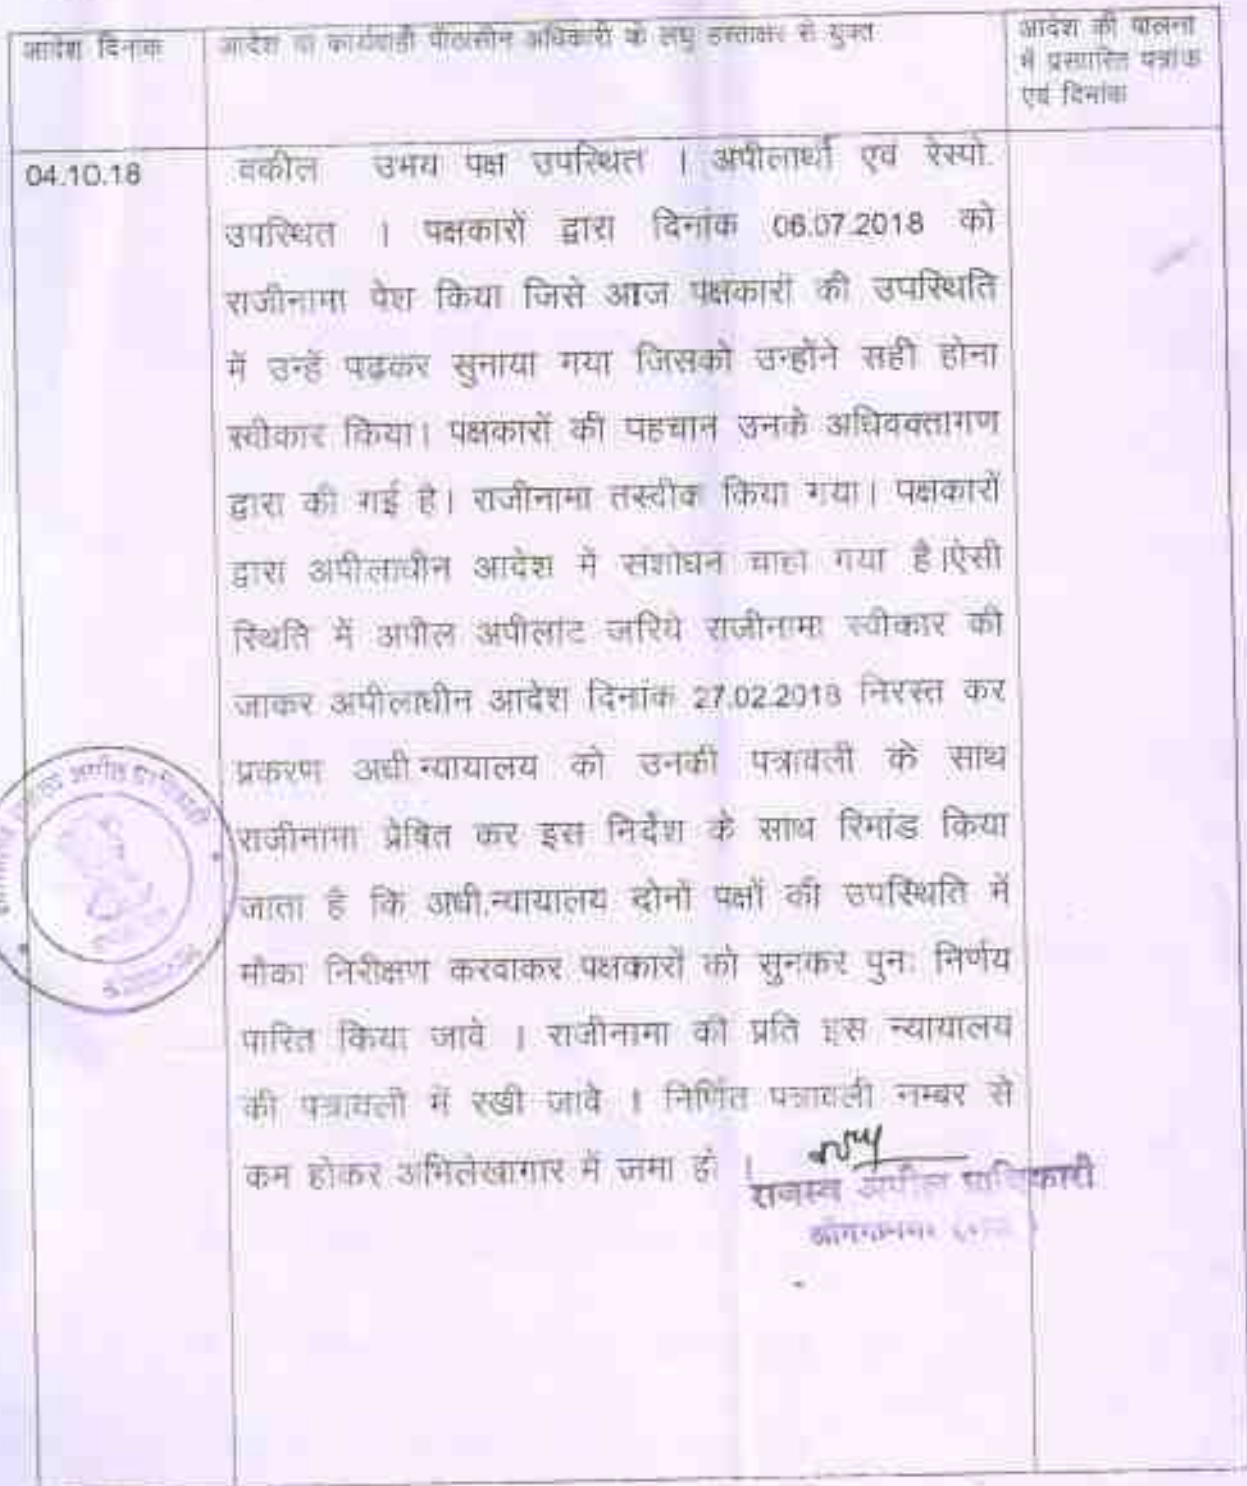 आदेश दिनांक
आदेश या कार्यवाही पीठासीन अधिकारी के लघु हस्ताक्षर से युक्त
आदेश की पालना
में प्रसारित पत्रांक
एवं दिनांक
04.10.18
वकील उभय पक्ष उपस्थित । अपीलार्थी एवं रेस्पो.
उपस्थित । पक्षकारों द्वारा दिनांक 06.07.2018 को
राजीनामा पेश किया जिसे आज पक्षकारों की उपस्थिति
में उन्हें पढ़कर सुनाया गया जिसको उन्होंने सही होना
स्वीकार किया। पक्षकारों की पहचान उनके अधिवक्तागण
द्वारा की गई है। राजीनामा तस्दीक किया गया। पक्षकारों
द्वारा अपीलाधीन आदेश में संशोधन चाहा गया है।ऐसी
स्थिति में अपील अपीलांट जरिये राजीनामा स्वीकार की
जाकर अपीलाधीन आदेश दिनांक 27.02.2018 निरस्त कर
प्रकरण अधी.न्यायालय को उनकी पत्रावली के साथ
राजीनामा प्रेषित कर इस निर्देश के साथ रिमांड किया
जाता है कि अधी.न्यायालय दोनों पक्षों की उपस्थिति में
मौका निरीक्षण करवाकर पक्षकारों को सुनकर पुनः निर्णय
पारित किया जावे । राजीनामा की प्रति इस न्यायालय
की पत्रावली में रखी जावे । निर्णित पत्रावली नम्बर से
कम होकर अभिलेखागार में जमा हो ।
राजस्व अपील प्राधिकारी